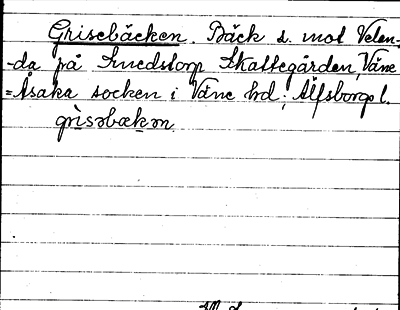 Grisebäcken. Bäck s. mot Velen-
-da på Smedstorp Skattegården, Väne
=Åsaka socken i Väne hd; Älfsborgs l.
grìsəbækəm